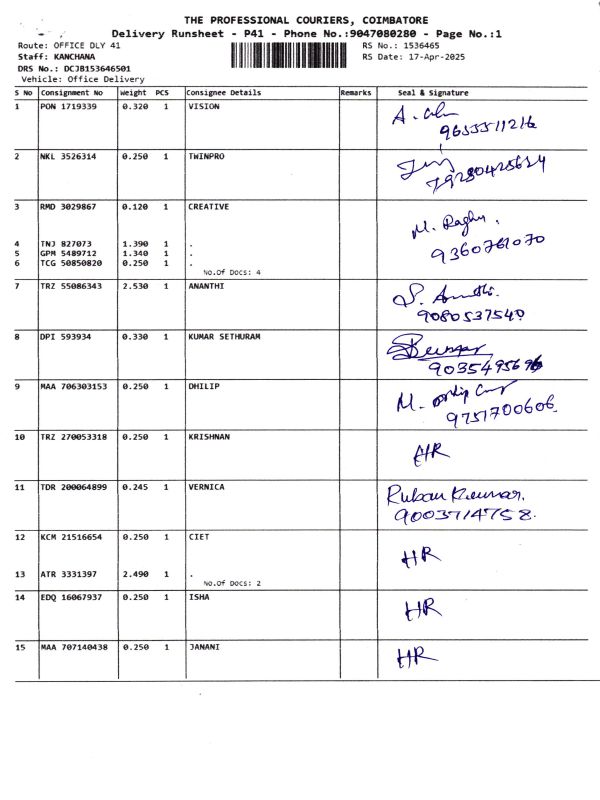 THE PROFESSIONAL COURIERS, COIMBATORE
Delivery Runsheet - P41 - Phone No.:9047080280 - Page No.:1
Route: OFFICE DLY 41 RS No.: 1536465
Staff: KANCHANA RS Date: 17-Apr-2025
DRS No.: DCJB153646501
Vehicle: Office Delivery
S No Consignment No Weight PCS Consignee Details Remarks Seal & Signature
1 PON 1719339 0.320 1 VISION A.
9655511216
2 NKL 3526314 0.250 1 TWINPRO
3 RMD 3029867 0.120 1 CREATIVE M. Raghu.
9360761070
4 TNJ 827073 1.390 1 .
5 GPM 5489712 1.340 1 .
6 TCG 50850820 0.250 1 .
No.Of Docs: 4
7 TRZ 55086343 2.530 1 ANANTHI
9080537540
8 DPI 593934 0.330 1 KUMAR SETHURAM
9 MAA 706303153 0.250 1 DHILIP M.
9751700606
10 TRZ 270053318 0.250 1 KRISHNAN HR
11 TDR 200064899 0.245 1 VERNICA Ruban Kumar.
9003714758.
12 KCM 21516654 0.250 1 CIET HR
13 ATR 3331397 2.490 1 .
No.Of Docs: 2
14 EDQ 16067937 0.250 1 ISHA HR
15 MAA 707140438 0.250 1 JANANI HR